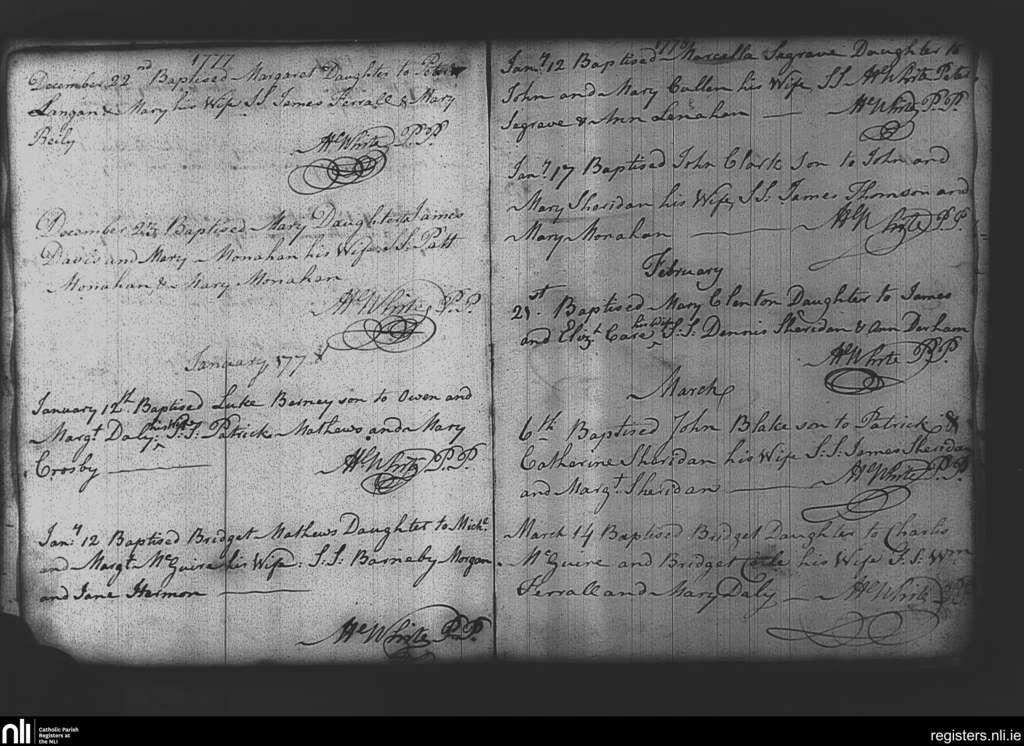 1777
December 22nd Baptised Margaret Daughter to Peter
Langan & Mary his Wife SS James Ferrall & Mary
Reily
He White P.P.
December 23 Baptised Mary Daughter to James
Davis and Mary Monahan his Wife SS: Patt
Monahan & Mary Monahan
He White P.P.
January 177
January 12th Baptised Luke Berney son to Owen and
Margt Daly his Wife S:S Patrick Mathews and Mary
Crosby
He White P.P.
Jany 12 Baptised Bridget Mathews Daughter to Michl
and Margt McGuire his Wife: S:S: Barnaby Morgan
and Jane Harmon
He White P.P.
Jany 12 Baptised Marcella Segrave Daughter to
John and Mary Cullen his Wife SS Peter
Segrave & Ann Lenahan He White P.P.
Jany 17 Baptised John Clark son to John and
Mary Sheridan his Wife SS: James Thomson and
Mary Monahan He White P.P.
February
21st. Baptised Mary Clenton Daughter to James
and Elizt his Wife S:S: Dennis Sheridan & Ann Durham
He White P.P.
March
6th Baptised John Blake son to Patrick &
Catharine Sheridan his Wife S:S: James Sheridan
and Margt. Sheridan He White P.P.
March 14 Baptised Bridget Daughter to Charles
McGuire and Bridget his Wife S:S: Wm
Ferrall and Mary Daly He White P.P.
nli
Catholic Parish
Registers at
the NLI
registers.nli.ie